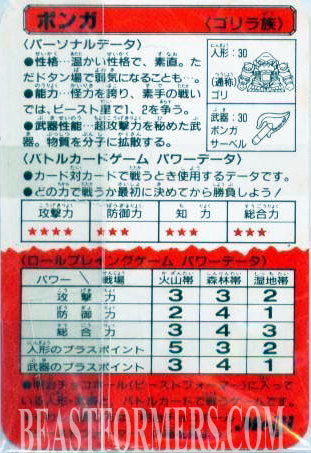 ポンガ 〈ゴリラ族〉
〈パーソナルデータ〉
●性格…温かい性格で、素直。た
だドタン場で弱気になることも…。
●能力…怪力を誇り、素手の戦い
では、ビースト星で1、2を争う。
●武器性能…超攻撃力を秘めた武
器。物質を分子に拡散する。
人形:30
(通称)
ゴリ
武器:30
ポンガ
サーベル
〈バトルカードゲーム パワーデータ〉
●カード対カードで戦うとき使用するデータです。
●どの力で戦うか最初に決めてから勝負しよう!
攻撃力 防御力 知力 総合力
★★★★ ★★★ ★ ★★★
〈ロールプレイングゲーム パワーデータ〉
パワー 戦場 火山帯 森林帯 湿地帯
攻撃力 3 3 2
防御力 2 4 1
総合力 3 4 3
人形のプラスポイント 5 3 2
武器のプラスポイント 3 4 1
●明治チョコボール(ビーストフォーマー)に入って
いる人形・武器と、バトルカードで戦うゲームです。
BEASTFORMERS.COM